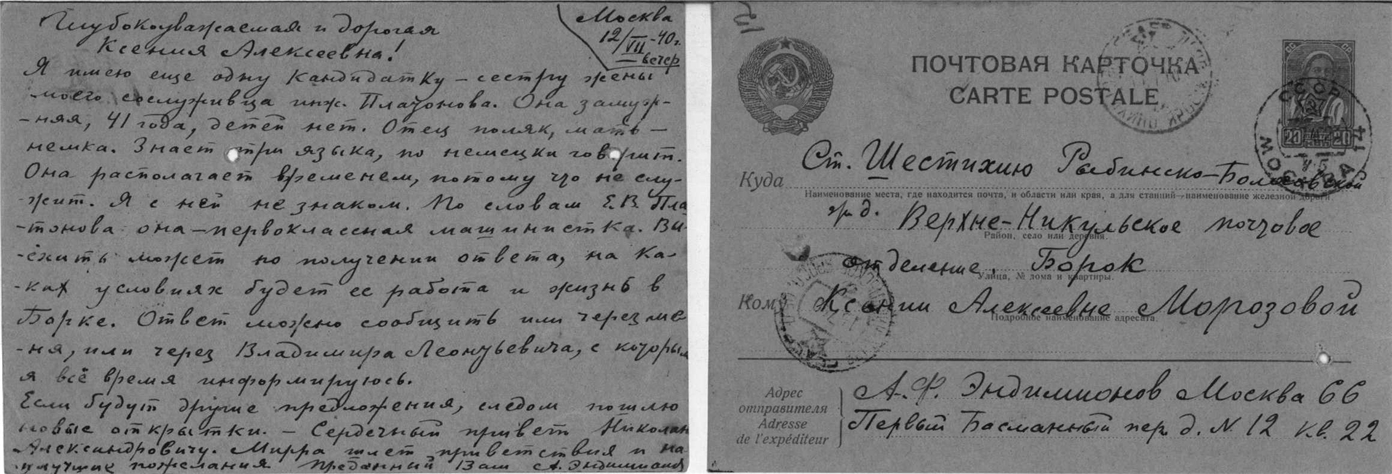 Москва
12/VII-40г.
вечер
Глубокоуважаемая и дорогая
Ксения Алексеевна!
Я имею еще одну кандидатку – сестру жены
моего сослуживца инж. Платонова. Она замуж-
-няя, 41 года, детей нет. Отец поляк, мать –
немка. Знает три языка, по немецки говорит.
Она располагает временем, потому что не слу-
-жит. Я с ней не знаком. По словам Е.В. Пла-
-тонова она – первоклассная машинистка. Вы-
-ехать может по получении ответа, на ка-
-ких условиях будет ее работа и жизнь в
Борке. Ответ можно сообщить или через ме-
-ня, или через Владимира Леонтьевича, с которым
я всё время информируюсь.
Если будут другие предложения, следом пошлю
новые открытки. – Сердечный привет Николаю
Александровичу. Мирра шлет приветствия и на-
-илучшие пожелания Преданный Вам А. Эндимионов
ПОЧТОВАЯ КАРТОЧКА
CARTE POSTALE
СССР
20 20
МОСКВА
Куда Ст. Шестихино Рыбинско-Бологовской
Наименование места, где находится почта, и области или края, а для станций – наименование железной дороги
ж.д. Верхне-Никульское почтовое
Район, село или деревня.
отделение, Борок
Улица, № дома и квартиры.
Кому Ксении Алексеевне Морозовой
Подробное наименование адресата.
Адрес
отправителя
Adresse
de l'expéditeur
А.Ф. Эндимионов Москва 66
Первый Басманный пер д. N 12 кв. 22